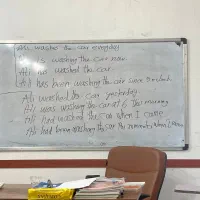 Ali washes the car everyday
Ali is washing the car now.
Ali has washed the car.
Ali has been washing the car since
Ali washed the car yesterday
Ali was washing the car at 6 this morning
Ali had washed the car when I came
Ali had been washing the car minutes when I